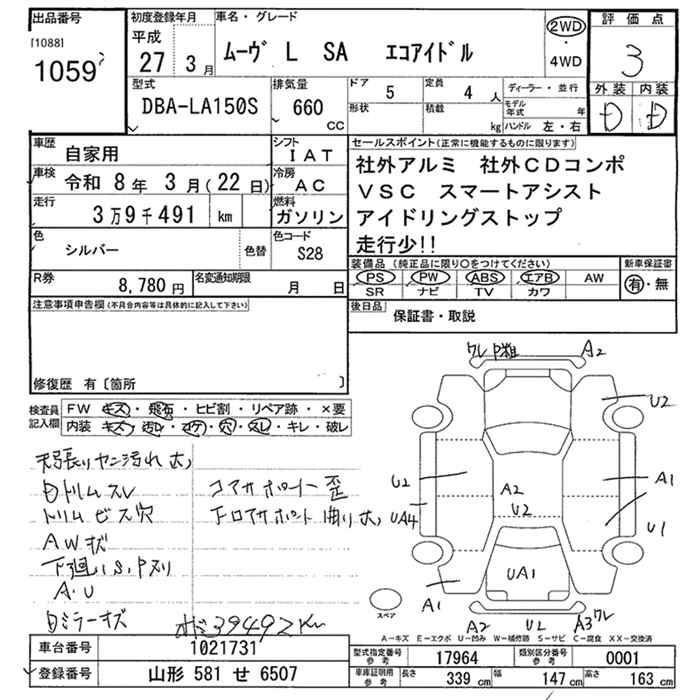 出品番号
[1088]
1059
初度登録年月
平成
27 3月
車名・グレード
ムーヴ L SA エコアイドル
2WD
・
4WD
評価点
3
外装 内装
D D
型式
DBA-LA150S
排気量
660
CC
ドア
5
定員
4 人
形状
積載
kg
ディーラー・並行
モデル年式 年
ハンドル 左・右
車歴
自家用
シフト
IAT
車検
令和 8年 3月(22日)
冷房
AC
走行
3万9千491 km
燃料
ガソリン
色
シルバー
色替
色コード
S28
R券
8,780円
名変通知期限
月 日
セールスポイント(正常に機能するものに限ります)
社外アルミ 社外CDコンポ
VSC スマートアシスト
アイドリングストップ
走行少!!
装備品(純正品に限り○をつけてください)
PS PW ABS エアB AW
SR ナビ TV カワ
新車保証書
有・無
後日品
保証書・取説
注意事項申告欄(不具合内容等は具体的に記入して下さい)
修復歴 有〔箇所 〕
検査員記入欄
FW キズ・飛石・ヒビ割・リペア跡・×要
内装 キズ・汚レ・コゲ・穴・スレ・キレ・破レ
天張りヤニ汚れ大
Dトリムスレ
トリムビス穴
AWキズ
下廻り S.Pスリ
A・U
Dミラーキズ
コアサポート歪
下ロアサポート曲り大
39492Km
ワレ A2
U2
U2
A2
U2
A1
UA4
U1
UA1
A1
A2
A3ワレ
スペア
A-キズ E-エクボ U-凹み W-補修跡 S-サビ C-腐食 XX-交換済
車台番号
1021731
登録番号
山形 581 せ 6507
型式指定番号
参考
17964
類別区分番号
参考
0001
車庫証明用
参考
長さ
339 cm
幅
147 cm
高さ
163 cm